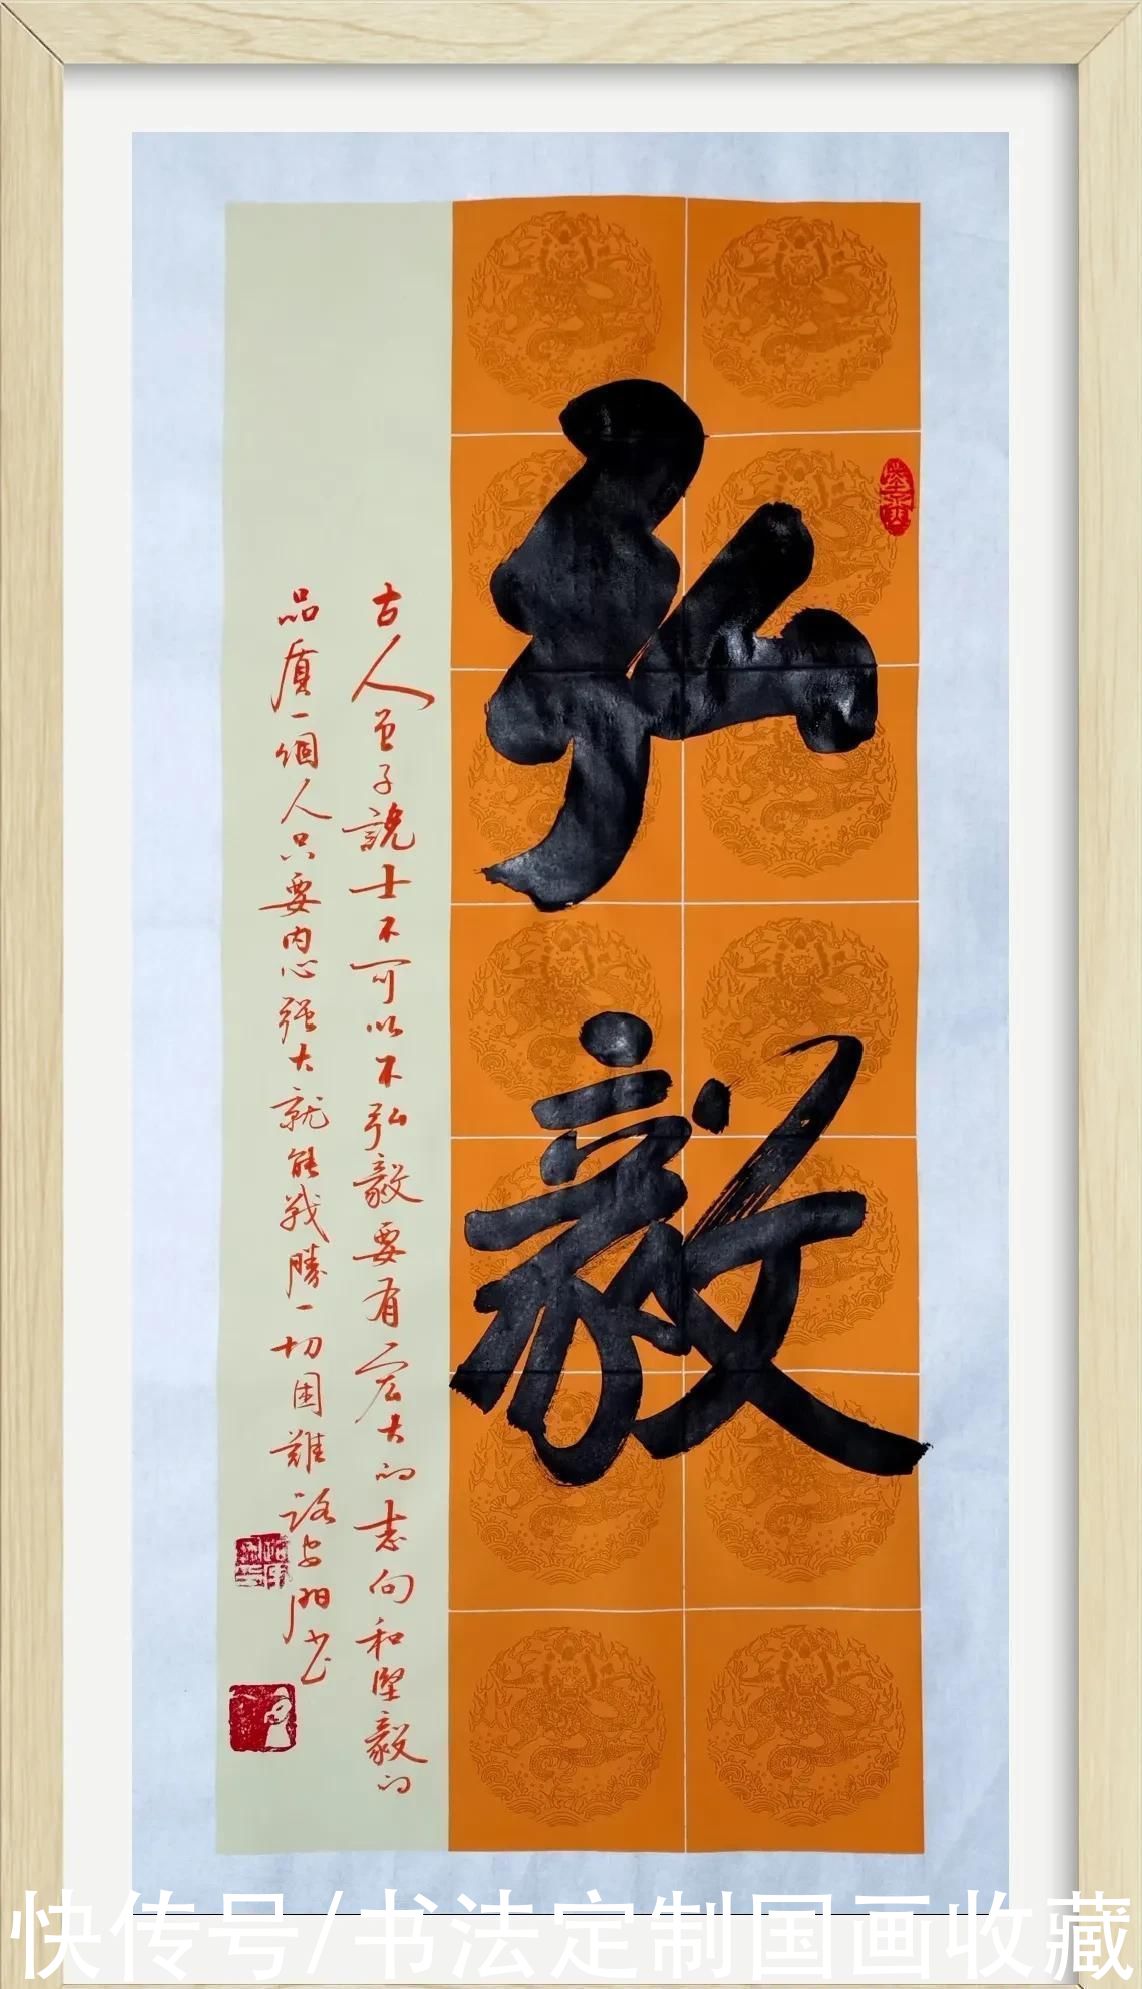 弘毅
古人曾子説士不可以不弘毅要有宏大的志向和堅毅的
品質一個人只要内心强大就能戰勝一切困難路安阳书
快传号/书法定制国画收藏